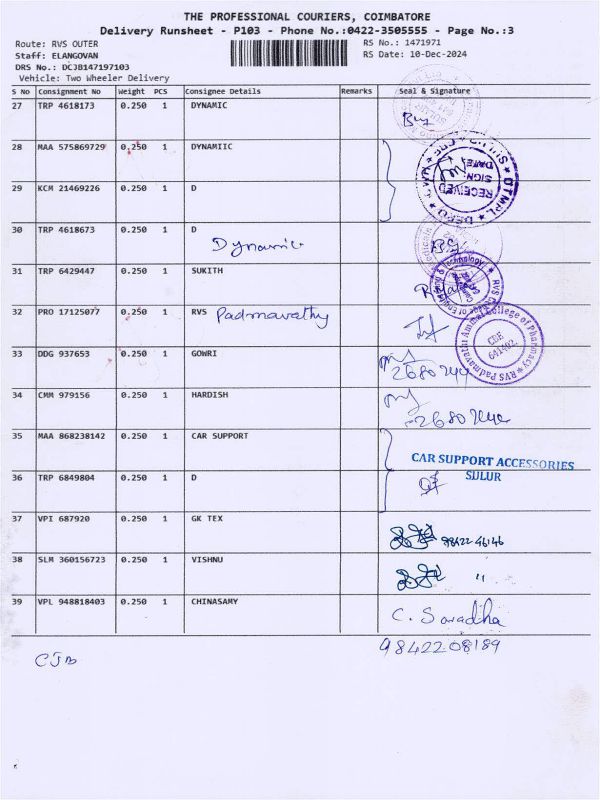 THE PROFESSIONAL COURIERS, COIMBATORE
Delivery Runsheet - P103 - Phone No.:0422-3505555 - Page No.:3
Route: RVS OUTER
Staff: ELANGOVAN
DRS No.: DCJB147197103
Vehicle: Two Wheeler Delivery
RS No.: 1471971
RS Date: 10-Dec-2024
S No Consignment No Weight PCS Consignee Details Remarks Seal & Signature
27 TRP 4618173 0.250 1 DYNAMIC
28 MAA 575869729 0.250 1 DYNAMIIC
RECEIVED
SIGN
DATE
29 KCM 21469226 0.250 1 D
30 TRP 4618673 0.250 1 D
Dynamic
31 TRP 6429447 0.250 1 SUKITH
32 PRO 17125077 0.250 1 RVS Padmavathy
RVS Padmavathi Ammal College of Pharmacy
CBE
641402.
33 DDG 937653 0.250 1 GOWRI
34 CMM 979156 0.250 1 HARDISH
35 MAA 868238142 0.250 1 CAR SUPPORT
CAR SUPPORT ACCESSORIES
SULUR
36 TRP 6849804 0.250 1 D
37 VPI 687920 0.250 1 GK TEX
98422 46146
38 SLM 360156723 0.250 1 VISHNU
"
39 VPL 948818403 0.250 1 CHINASAMY
C. Saradha
98422 08189
CJB